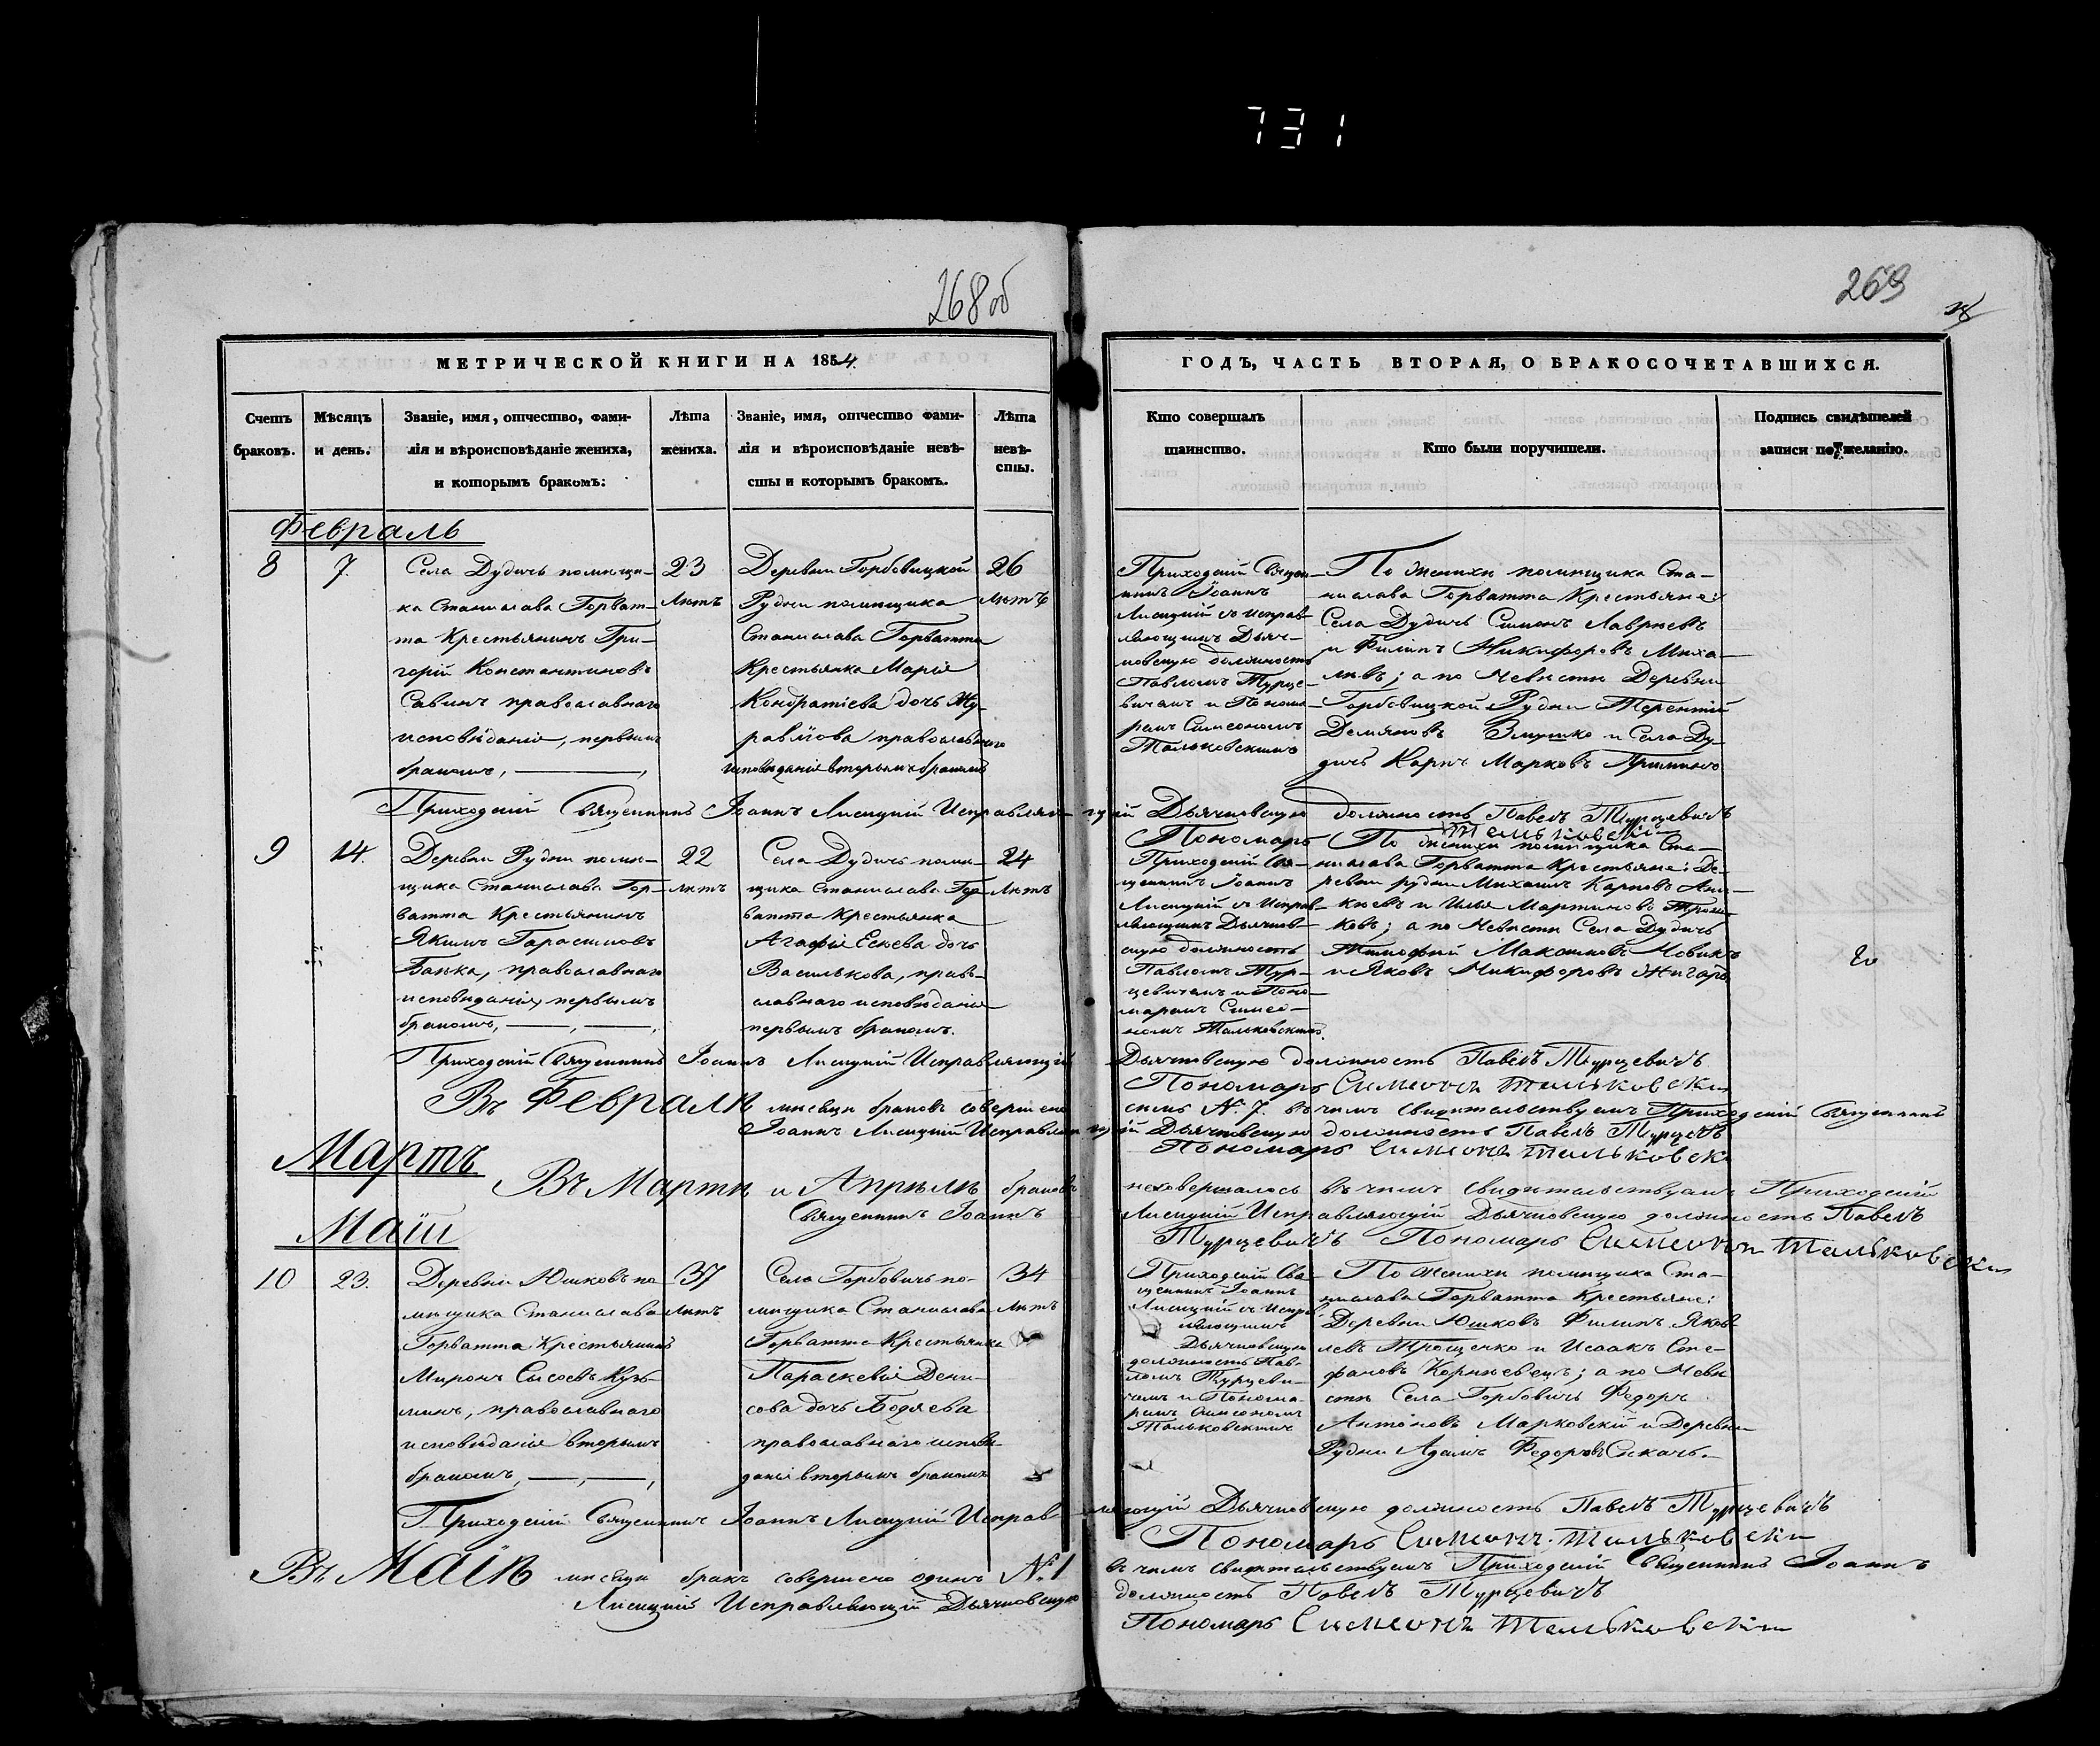 731
268 об
269
МЕТРИЧЕСКОЙ КНИГИ НА 1854.
ГОДЪ, ЧАСТЬ ВТОРАЯ, О БРАКОСОЧЕТАВШИХСЯ.
Счетъ браковъ.
Мѣсяцъ и день.
Званіе, имя, отчество, фами-
лія и вѣроисповѣданіе жениха,
и которымъ бракомъ:
Лѣта
жениха.
Званіе, имя, отчество фами-
лія и вѣроисповѣданіе невѣ-
сты и которымъ бракомъ.
Лѣта
невѣ-
сты.
Кто совершалъ
таинство.
Кто были поручители.
Подпись свидѣтелей
записи по желанію.
Февраль
8
7.
Села Дудичъ помѣщи-
ка Станислава Горват-
та Крестьянинъ Гри-
горій Константиновъ
Савинъ православнаго
исповѣданія, первымъ
бракомъ,
23
Лѣтъ
Деревни Горбовицкой
Рудни помѣщика
Станислава Горватта
Крестьянка Марія
Кондратіева дочь Жу-
равлова православнаго
исповѣданія вторымъ бракомъ
26
Лѣтъ
Приходскій Священ-
никъ Іоаннъ
Лисицкій съ исправ-
ляющимъ Дьяч-
ковскую должность
Павломъ Турце-
вичемъ и Понома-
ремъ Симеономъ
Тальковскимъ
По Женихѣ помѣщика Ста-
нислава Горватта Крестьяне:
Села Дудичъ Симонъ Лавріевъ
и Филипъ Никифоровъ Миха-
левъ; а по Невѣстѣ Деревни
Горбовицкой Рудни Терентій
Демяновъ Змушко и Села Ду-
дичъ Карпъ Марковъ
Приходскій Священникъ Іоаннъ Лисицкій Исправляющій Дьячковскую должность Павелъ Турцевичъ
Пономарь Тальковски
9
14.
Деревни Рудни помѣ-
щика Станислава Гор-
ватта Крестьянинъ
Якимъ Гарасимовъ
Банка, православнаго
исповѣданія, первымъ
бракомъ,
22
лѣтъ
Села Дудичъ помѣ-
щика Станислава Гор-
ватта Крестьянка
Агафія Есиева дочь
Василькова, право-
славнаго исповѣданія
первымъ бракомъ.
24
Лѣтъ
Приходскій Свя-
щенникъ Іоаннъ
Лисицкій съ Исправ-
ляющимъ Дьячков-
скую должность
Павломъ Тур-
цевичемъ и Поно-
маремъ Симео-
номъ Тальковскимъ
По Женихѣ помѣщика Ста-
нислава Горватта Крестьяне: Де-
ревни рудни Михаилъ Карповъ
и Илья Мартиновъ
а по Невѣсти Села Дудичъ
Тимофій Максимовъ Новикъ
и Яковъ Никифоровъ Жигарь
Приходскій Священникъ Іоаннъ Лисицкій Исправляющій Дьячковскую должность Павелъ Турцевичъ
Пономарь Симеонъ Тальковски
Въ Февралѣ мѣсяцѣ браковъ совершено семь №. 7. въ чемъ свидѣтельствуемъ Приходскій Священникъ
Іоаннъ Лисицкій Исправляющій Дьячковскую должность Павелъ Турцевичъ
Пономарь Симеонъ Тальковски
Мартъ
Въ Мартѣ и Апрѣлѣ браковъ несовершалось въ чемъ свидѣтельствуемъ Приходскій
Священникъ Іоаннъ Лисицкій Исправляющій Дьячковскую должность Павелъ
Турцевичъ Пономарь Симеонъ Тальковски
Май
10
23.
Деревни Юшковъ по-
мѣщика Станислава
Горватта Крестьянинъ
Миронъ Сысоевъ Кузь-
минъ, православнаго
исповѣданія вторымъ
бракомъ,
37
лѣтъ
Села Горбовичъ по-
мѣщика Станислава
Горватта Крестьянка
Параскевія Дени-
сова дочь Бодяева
православнаго исповѣ-
данія вторымъ бракомъ
34
лѣтъ
Приходскій Свя-
щенникъ Іоаннъ
Лисицкій съ Исправ-
ляющимъ
Дьячковскую
должность Пав-
ломъ Турцеви-
чемъ и Понома-
ремъ Симеономъ
Тальковскимъ
По Женихѣ помѣщика Ста-
нислава Горватта Крестьяне:
Деревни Юшковъ Филипъ Яков-
левъ Трощенко и Исаакъ Сте-
фановъ Корніевецъ; а по Невѣ-
стѣ Села Горбовичъ Федоръ
Антоновъ Марковскій и Деревни
Рудни Адамъ Федоровъ Сикачъ.
Приходскій Священникъ Іоаннъ Лисицкій Исправляющій Дьячковскую должность Павелъ Турцевичъ
Пономарь Симеонъ Тальковски
Въ Маіѣ мѣсяцѣ бракъ совершено одинъ №. 1 въ чемъ свидѣтельствуемъ Приходскій Священникъ Іоаннъ
Лисицкій Исправляющій Дьячковскую должность Павелъ Турцевичъ
Пономарь Симеонъ Тальковски